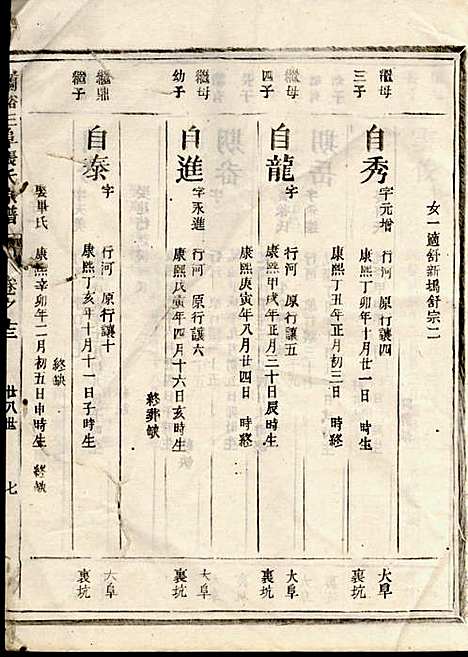 女一適舒新塢舒宗二
繼母
三子
自秀
字元增
行河 原行讓四
康熙丁卯年十月廿一日 時生
康熙丁丑年正月初三日 時終
大阜
裏坑
繼母
四子
自龍
字
行河 原行讓五
康熙甲戌年正月三十日辰時生
康熙庚寅年八月廿四日 時終
大阜
裏坑
繼母
幼子
自進
字永進
行河 原行讓六
康熙戊寅年四月十六日亥時生
終葬缺
大阜
裏坑
繼鼎
繼子
自泰
字
行河 原行讓十
康熙丁亥年十月十一日子時生
終缺
娶畢氏 康熙辛卯年二月初五日申時生 終缺
大阜
裏坑
張氏宗譜 卷之三 廿八世 七